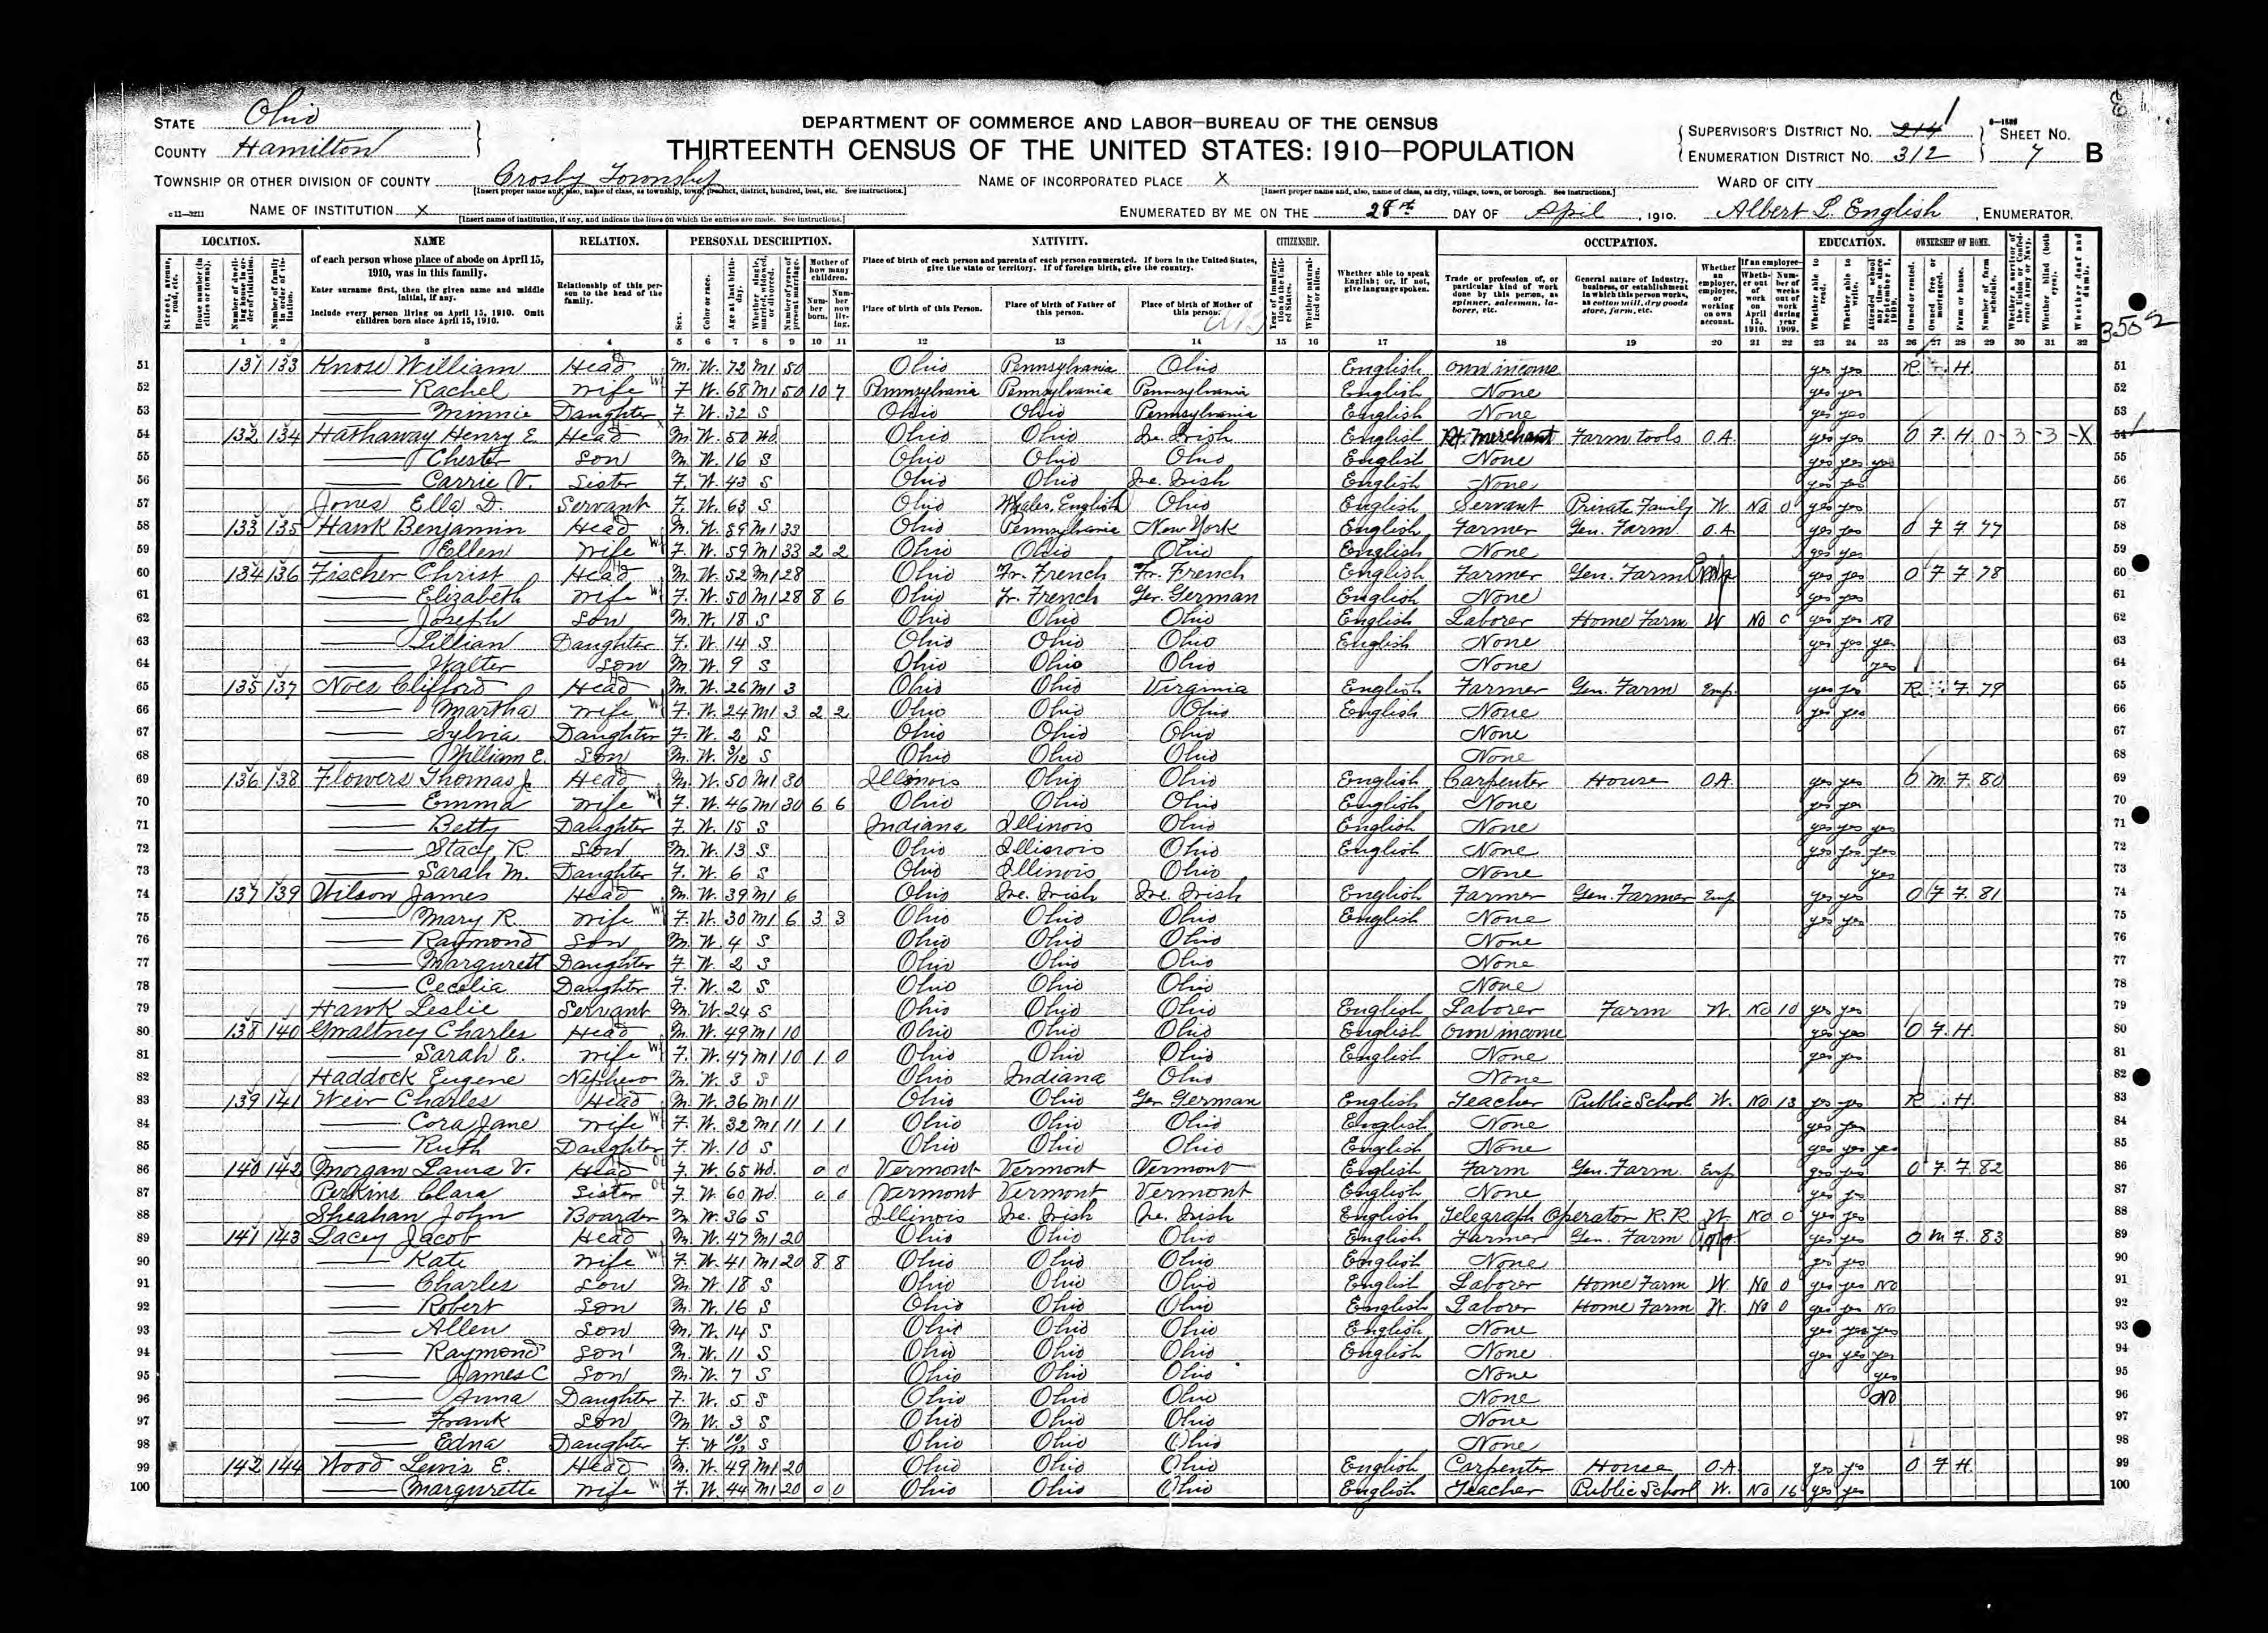 STATE Ohio
COUNTY Hamilton
DEPARTMENT OF COMMERCE AND LABOR—BUREAU OF THE CENSUS
THIRTEENTH CENSUS OF THE UNITED STATES: 1910—POPULATION
SUPERVISOR'S DISTRICT No. 214 1
ENUMERATION DISTRICT No. 312
SHEET No. 7 B
TOWNSHIP OR OTHER DIVISION OF COUNTY Crosby Township
NAME OF INCORPORATED PLACE X
WARD OF CITY
[Insert proper name and, also, name of class, as township, town, precinct, district, hundred, beat, etc. See instructions.]
[Insert proper name and, also, name of class, as city, village, town, or borough. See instructions.]
NAME OF INSTITUTION X
[Insert name of institution, if any, and indicate the lines on which the entries are made. See instructions.]
ENUMERATED BY ME ON THE 28th DAY OF April, 1910. Albert L. English, ENUMERATOR.
LOCATION. NAME RELATION. PERSONAL DESCRIPTION. NATIVITY. CITIZENSHIP. OCCUPATION. EDUCATION. OWNERSHIP OF HOME.
1 2 3 4 5 6 7 8 9 10 11 12 13 14 15 16 17 18 19 20 21 22 23 24 25 26 27 28 29 30 31 32
51 131 133 Knose William Head M. W. 72 M1 50 Ohio Pennsylvania Ohio English own income yes yes R. H. 51
52 Rachel Wife F. W. 68 M1 50 10 7 Pennsylvania Pennsylvania Pennsylvania English None yes yes 52
53 Minnie Daughter F. W. 32 S Ohio Ohio Pennsylvania English None yes yes 53
54 132 134 Hathaway Henry E. Head M. W. 50 Wd. Ohio Ohio Ire. Irish English Merchant Farm tools O.A. yes yes O F. H. 54
55 Chester Son M. W. 16 S Ohio Ohio Ohio English None yes yes yes 55
56 Carrie V. Sister F. W. 43 S Ohio Ohio Ire. Irish English None yes yes 56
57 Jones Ella D. Servant F. W. 63 S Ohio Whales, English Ohio English Servant Private Family W. No 0 yes yes 57
58 133 135 Hawk Benjamin Head M. W. 59 M1 33 Ohio Pennsylvania New York English Farmer Gen. Farm O.A. yes yes O F F. 77 58
59 Ellen Wife F. W. 59 M1 33 2 2 Ohio Ohio Ohio English None yes yes 59
60 134 136 Fischer Christ Head M. W. 52 M1 28 Ohio Fr. French Fr. French English Farmer Gen. Farm Emp yes yes O F F. 78 60
61 Elizabeth Wife F. W. 50 M1 28 8 6 Ohio Fr. French Ger. German English None yes yes 61
62 Joseph Son M. W. 18 S Ohio Ohio Ohio English Laborer Home Farm W No 0 yes yes No 62
63 Lillian Daughter F. W. 14 S Ohio Ohio Ohio English None yes yes yes 63
64 Walter Son M. W. 9 S Ohio Ohio Ohio None yes 64
65 135 137 Noes Clifford Head M. W. 26 M1 3 Ohio Ohio Virginia English Farmer Gen. Farm Emp. yes yes R. F. 79 65
66 Martha Wife F. W. 24 M1 3 2 2 Ohio Ohio Ohio English None yes yes 66
67 Sylvia Daughter F. W. 2 S Ohio Ohio Ohio None 67
68 William E. Son M. W. 3/12 S Ohio Ohio Ohio None 68
69 136 138 Flowers Thomas J. Head M. W. 50 M1 30 Illinois Ohio Ohio English Carpenter House O.A. yes yes O M F. 80 69
70 Emma Wife F. W. 46 M1 30 6 6 Ohio Ohio Ohio English None yes yes 70
71 Betty Daughter F. W. 15 S Indiana Illinois Ohio English None yes yes yes 71
72 Stacy R. Son M. W. 13 S Ohio Illinois Ohio English None yes yes yes 72
73 Sarah M. Daughter F. W. 6 S Ohio Illinois Ohio None yes 73
74 137 139 Wilson James Head M. W. 39 M1 6 Ohio Ire. Irish Ire. Irish English Farmer Gen. Farmer Emp yes yes O F F. 81 74
75 Mary R. Wife F. W. 30 M1 6 3 3 Ohio Ohio Ohio English None yes yes 75
76 Raymond Son M. W. 4 S Ohio Ohio Ohio None 76
77 Margurett Daughter F. W. 2 S Ohio Ohio Ohio None 77
78 Cecelia Daughter F. W. 2 S Ohio Ohio Ohio None 78
79 Hawk Leslie Servant M. W. 24 S Ohio Ohio Ohio English Laborer Farm W. No 10 yes yes 79
80 138 140 Gwaltney Charles Head M. W. 49 M1 10 Ohio Ohio Ohio English own income yes yes O F. H. 80
81 Sarah E. Wife F. W. 47 M1 10 1 0 Ohio Ohio Ohio English None yes yes 81
82 Haddock Eugene Nephew M. W. 3 S Ohio Indiana Ohio None 82
83 139 141 Weir Charles Head M. W. 36 M1 11 Ohio Ohio Ger German English Teacher Public School W. No 13 yes yes R H. 83
84 Cora Jane Wife F. W. 32 M1 11 1 1 Ohio Ohio Ohio English None yes yes 84
85 Ruth Daughter F. W. 10 S Ohio Ohio Ohio English None yes yes yes 85
86 140 142 Morgan Laura V. Head F. W. 65 Wd. 0 0 Vermont Vermont Vermont English Farm Gen. Farm. Emp yes yes O F F. 82 86
87 Perkins Clara Sister F. W. 60 Wd. 0 0 Vermont Vermont Vermont English None yes yes 87
88 Sheahan John Boarder M. W. 36 S Illinois Ire. Irish Ire. Irish English Telegraph Operator R. R. W. No 0 yes yes 88
89 141 143 Lacey Jacob Head M. W. 47 M1 20 Ohio Ohio Ohio English Farmer Gen. Farm yes yes O M F. 83 89
90 Kate Wife F. W. 41 M1 20 8 8 Ohio Ohio Ohio English None yes yes 90
91 Charles Son M. W. 18 S Ohio Ohio Ohio English Laborer Home Farm W. No 0 yes yes No 91
92 Robert Son M. W. 16 S Ohio Ohio Ohio English Laborer Home Farm W. No 0 yes yes No 92
93 Allen Son M. W. 14 S Ohio Ohio Ohio English None yes yes yes 93
94 Raymond Son M. W. 11 S Ohio Ohio Ohio English None yes yes yes 94
95 James C Son M. W. 7 S Ohio Ohio Ohio None yes 95
96 Anna Daughter F. W. 5 S Ohio Ohio Ohio None No 96
97 Frank Son M. W. 3 S Ohio Ohio Ohio None 97
98 Edna Daughter F. W 10/12 S Ohio Ohio Ohio None 98
99 142 144 Wood Lewis E. Head M. W. 49 M1 20 Ohio Ohio Ohio English Carpenter House O.A. yes yes O F H. 99
100 Margurette Wife F. W. 44 M1 20 0 0 Ohio Ohio Ohio English Teacher Public School W. No 16 yes yes 100